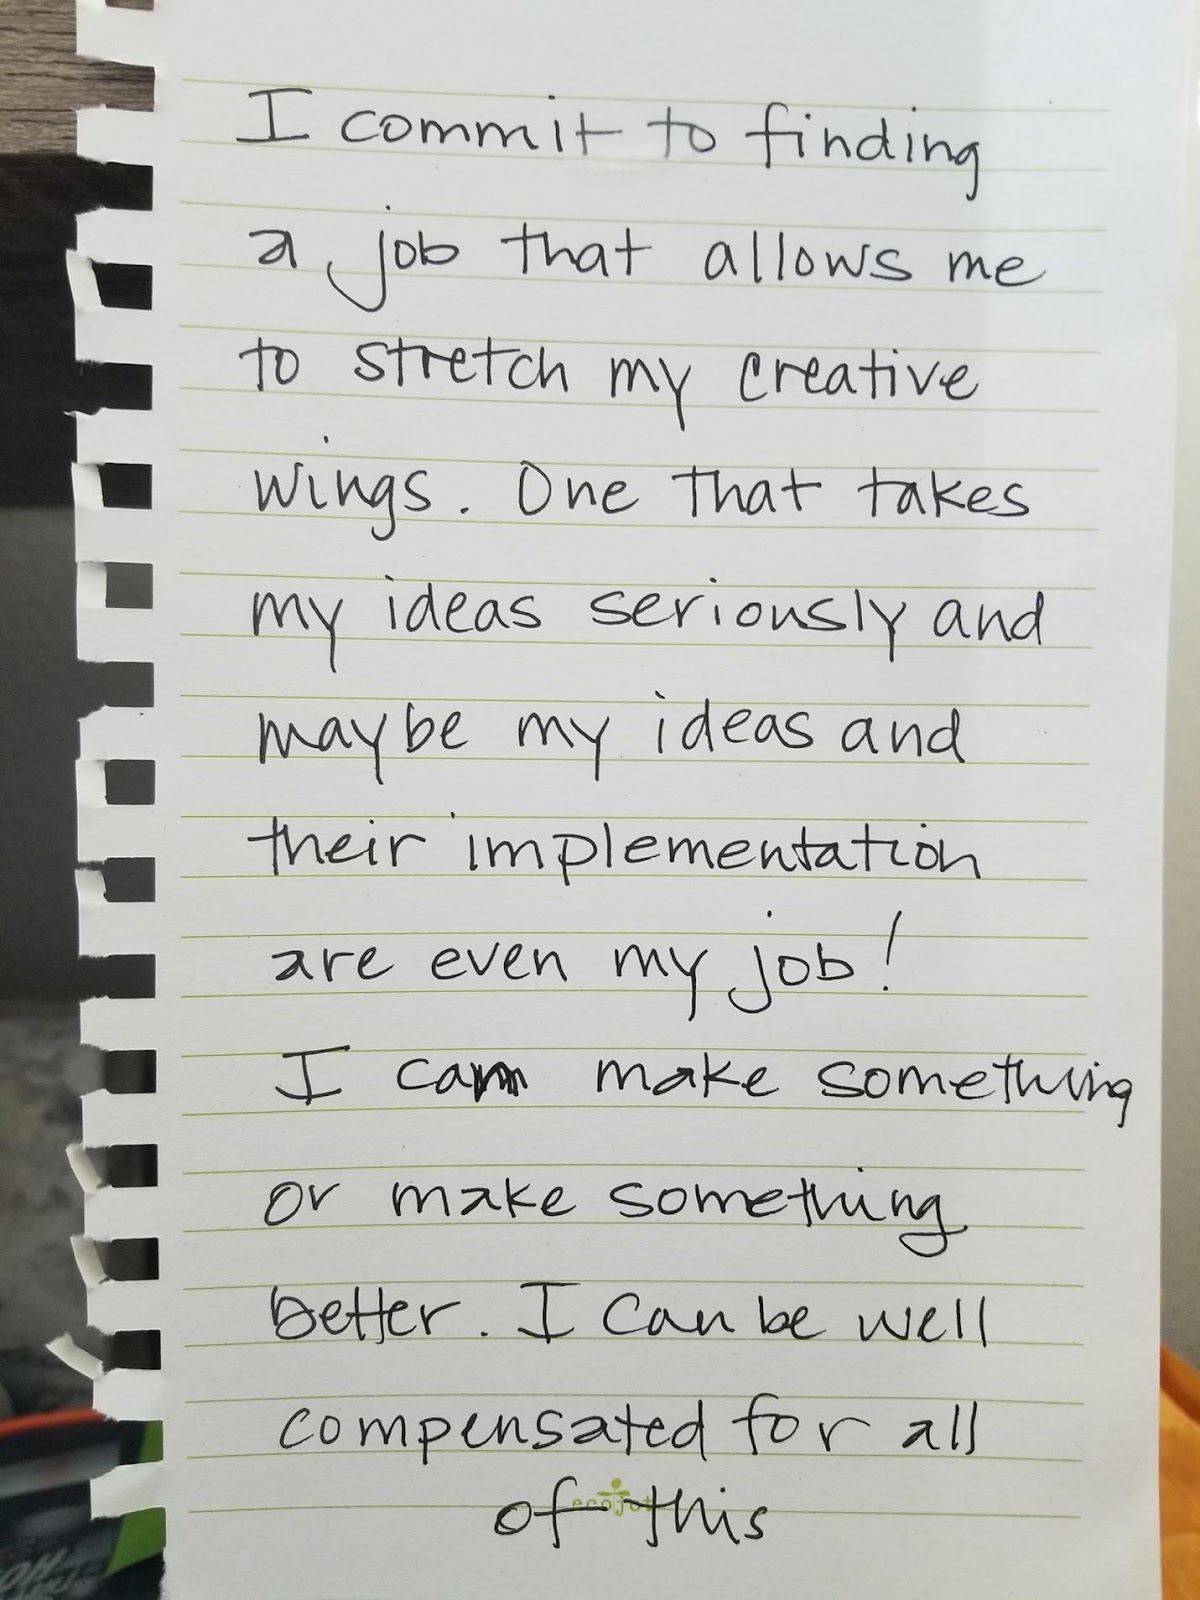 I commit to finding
a job that allows me
to stretch my creative
wings. One that takes
my ideas seriously and
maybe my ideas and
their implementation
are even my job!
I can make something
or make something
better. I can be well
compensated for all
of this
ecojot